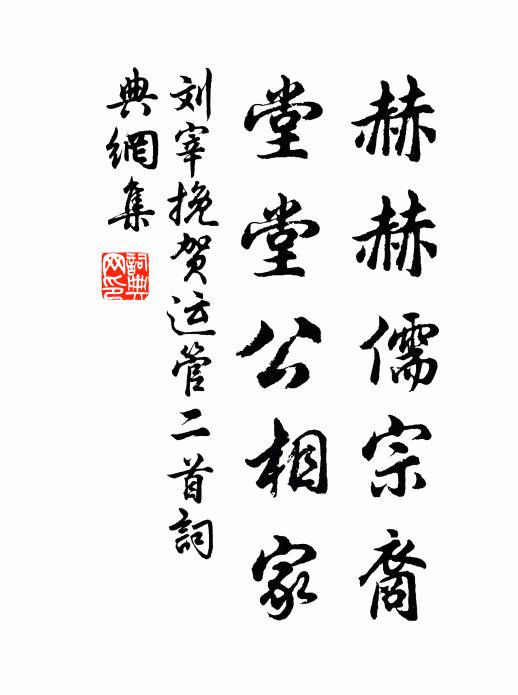 赫赫儒宗裔
堂堂公相家
刘宰挽贺运管二首詞
典網集
詞典网印